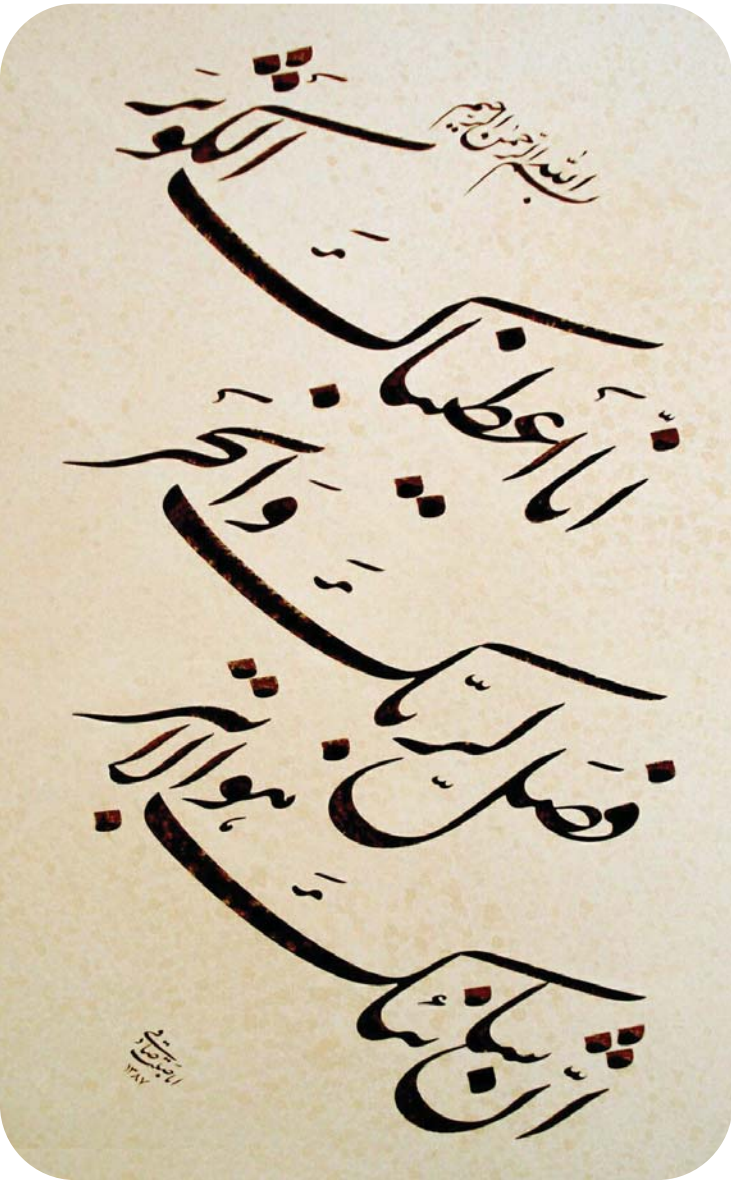 بسم الله الرحمن الرحیم
انا اعطیناکَ الکوثَر
فصَلِّ لربّکَ وَانحَر
انّ شانئکَ هوالابتر
۱۳۸۷